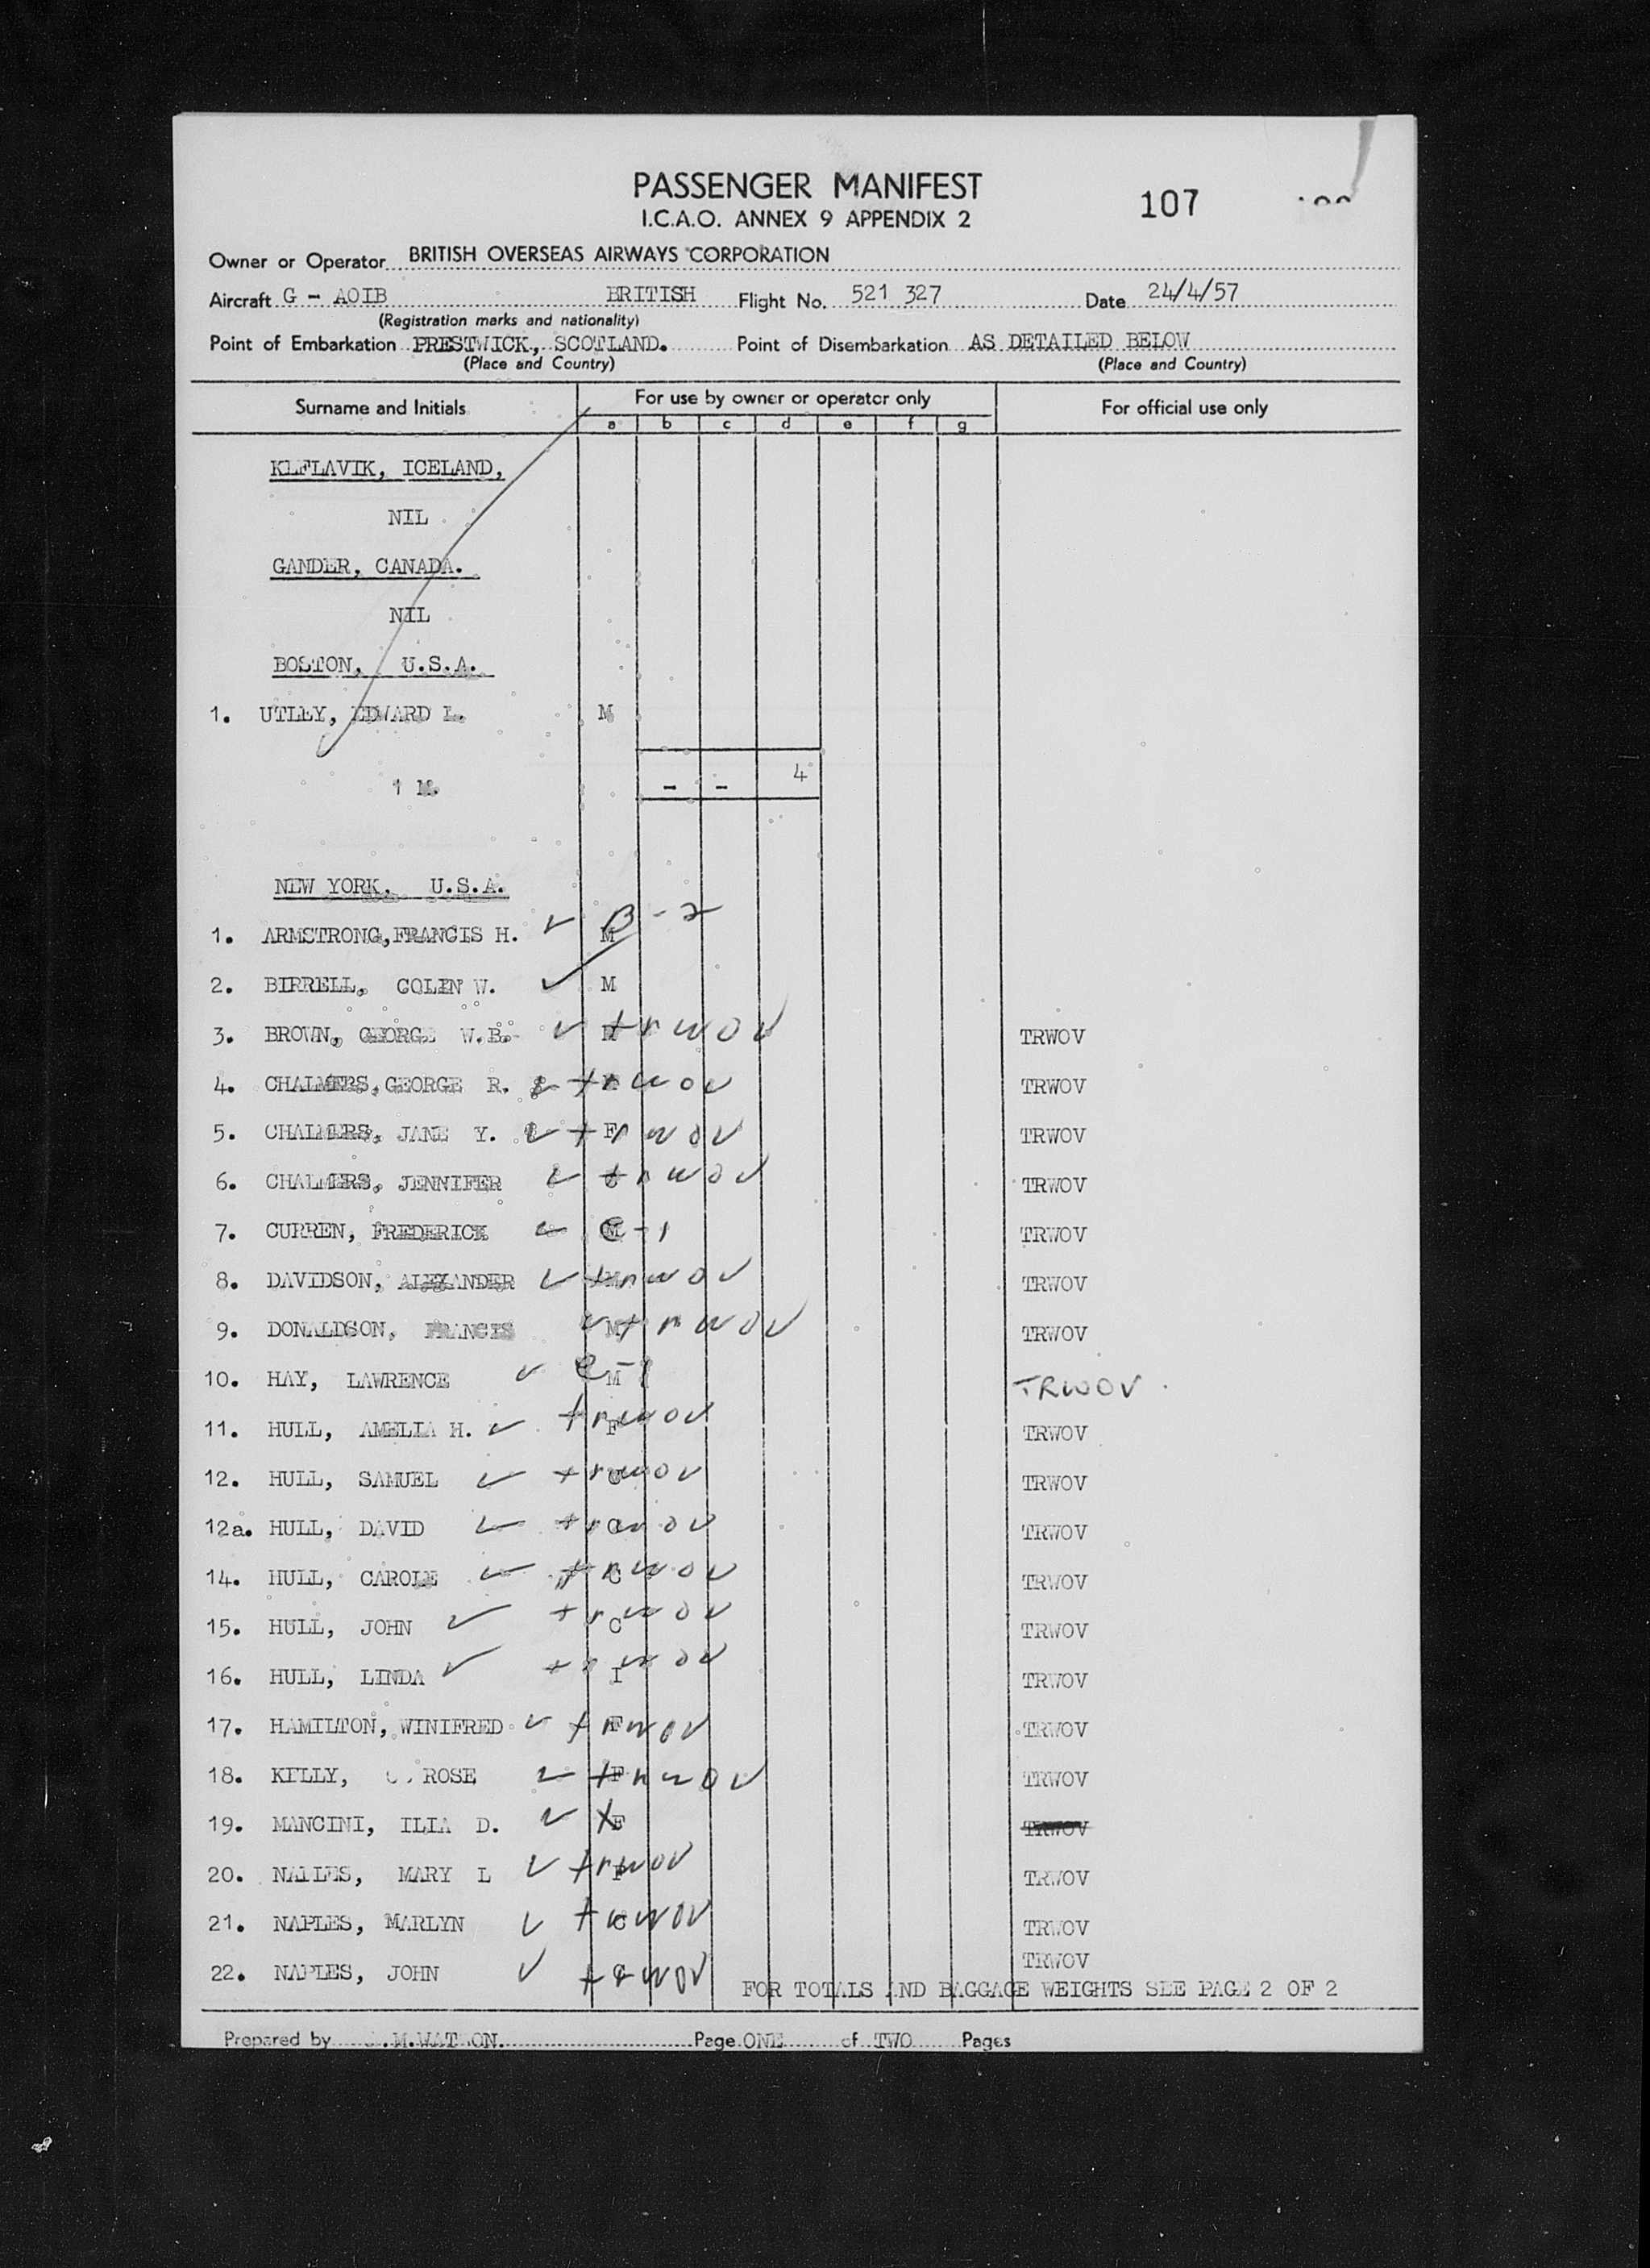 PASSENGER MANIFEST
107
I.C.A.O. ANNEX 9 APPENDIX 2
Owner or Operator BRITISH OVERSEAS AIRWAYS CORPORATION
Aircraft G - AOIB BRITISH Flight No. 521 327 Date 24/4/57
(Registration marks and nationality)
Point of Embarkation PRESTWICK, SCOTLAND. Point of Disembarkation AS DETAILED BELOW
(Place and Country) (Place and Country)
Surname and Initials For use by owner or operator only For official use only
a b c d e f g
KEFLAVIK, ICELAND,
NIL
GANDER, CANADA.
NIL
BOSTON, U.S.A.
1. UTLEY, EDWARD L. M
1 M. - - 4
NEW YORK, U.S.A.
1. ARMSTRONG, FRANCIS H. ✓ M B - 2
2. BIRRELL, COLIN W. ✓ M
3. BROWN, GEORGE W.B. ✓ M trwov TRWOV
4. CHALMERS, GEORGE R. ✓ trwov TRWOV
5. CHALMERS, JANE Y. ✓ F trwov TRWOV
6. CHALMERS, JENNIFER ✓ trwov TRWOV
7. CURREN, FREDERICK ✓ M C - 1 TRWOV
8. DAVIDSON, ALEXANDER ✓ M trwov TRWOV
9. DONALDSON, FRANCIS ✓ M trwov TRWOV
10. HAY, LAWRENCE ✓ M C - 1 TRWOV
11. HULL, AMELIA H. ✓ F trwov TRWOV
12. HULL, SAMUEL ✓ C trwov TRWOV
12a. HULL, DAVID ✓ C trwov TRWOV
14. HULL, CAROLE ✓ C trwov TRWOV
15. HULL, JOHN ✓ C trwov TRWOV
16. HULL, LINDA ✓ I trwov TRWOV
17. HAMILTON, WINIFRED ✓ F trwov TRWOV
18. KELLY, ROSE ✓ F trwov TRWOV
19. MANCINI, ILIA D. ✓ F X TRWOV
20. MARY L ✓ F trwov TRWOV
21. NAPLES, MARLYN ✓ C trwov TRWOV
22. NAPLES, JOHN ✓ C trwov TRWOV
FOR TOTALS AND BAGGAGE WEIGHTS SEE PAGE 2 OF 2
Prepared by .M.WATSON. Page ONE of TWO Pages